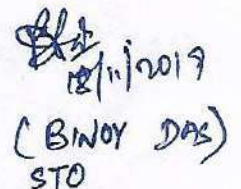 18/11/2019
(BINOY DAS)
STO